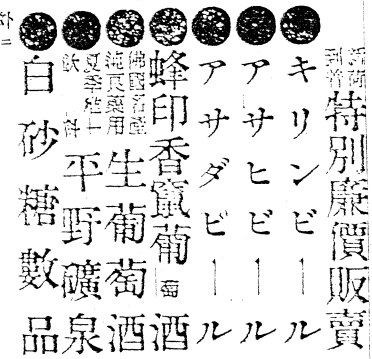 新荷到着 特別廉價販賣
キリンビール
アサヒビール
アサダビール
蜂印香竄葡萄酒
佛國名産純良藥用 生葡萄酒
夏季唯一飲料 平野礦泉
白砂糖數品
外ニ